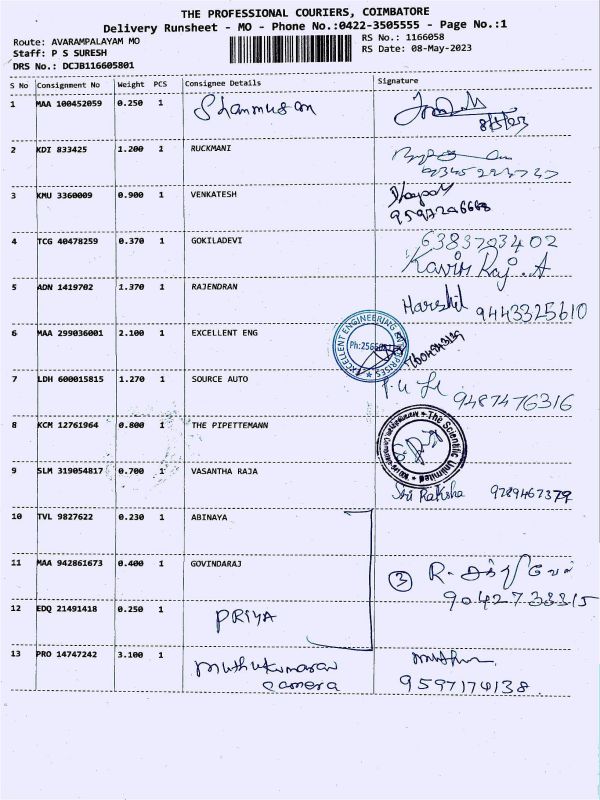 THE PROFESSIONAL COURIERS, COIMBATORE
Delivery Runsheet - MO - Phone No.:0422-3505555 - Page No.:1
Route: AVARAMPALAYAM MO
RS No.: 1166058
Staff: P S SURESH
RS Date: 08-May-2023
DRS No.: DCJB116605801
S No Consignment No Weight PCS Consignee Details Signature
1 MAA 100452059 0.250 1 Shanmugam
8/5/23
2 KDI 833425 1.200 1 RUCKMANI
3 KMU 3360009 0.900 1 VENKATESH
4 TCG 40478259 0.370 1 GOKILADEVI 6383703402
Kavin Raj. A
5 ADN 1419702 1.370 1 RAJENDRAN Harshil 9443325610
6 MAA 299036001 2.100 1 EXCELLENT ENG
EXCELLENT ENGINEERING ENTERPRISES
7 LDH 600015815 1.270 1 SOURCE AUTO 9487476316
8 KCM 12761964 0.800 1 THE PIPETTEMANN
The Scientific Unlimited
9 SLM 319054817 0.700 1 VASANTHA RAJA Sri Raksha 9789467379
10 TVL 9827622 0.230 1 ABINAYA
11 MAA 942861673 0.400 1 GOVINDARAJ 3 R.
9042738315
12 EDQ 21491418 0.250 1 PRIYA
13 PRO 14747242 3.100 1 Muthukumaran
camera
9597174138